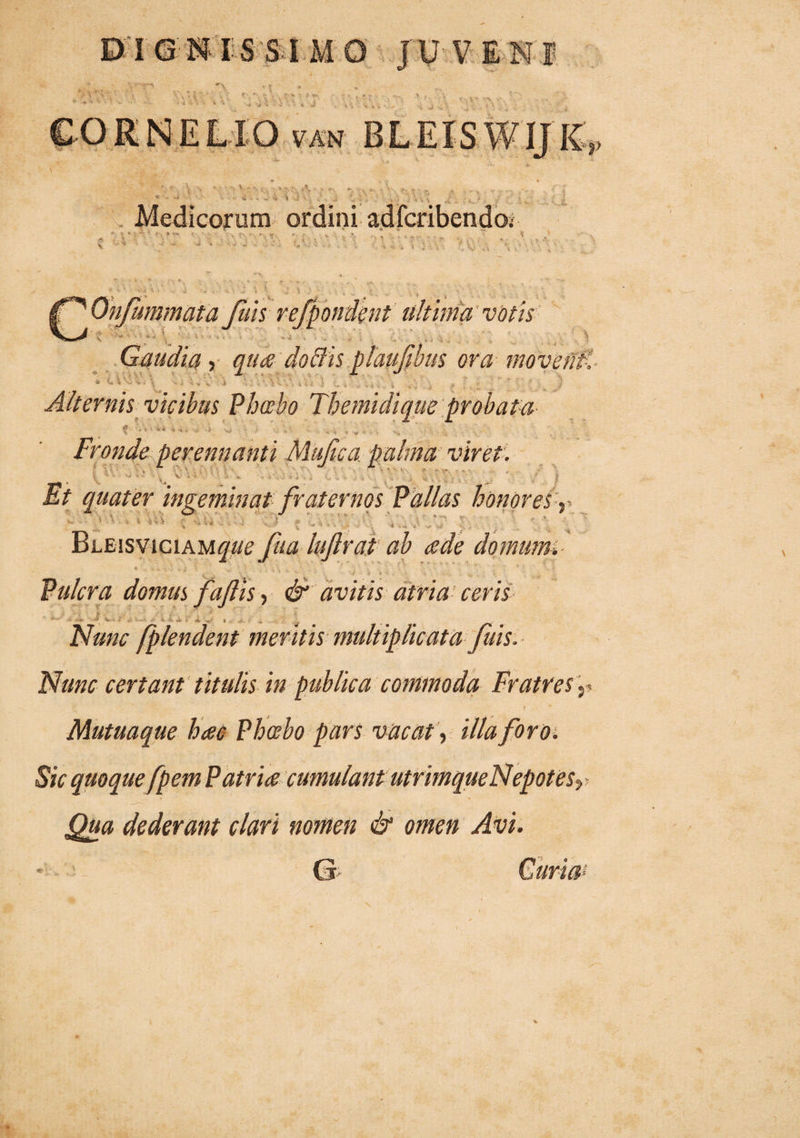 DIGNISSIMO JUVENI
CORNELIO VAN BLEISWIJK,
Medicorum ordini adſcribendo.
COnſummata ſuis reſpondent ultima votis
Gaudia, quæ doctis plauſibus ora movent.
Alternis vicibus Phœbo Themidique probata
Fronde perennanti Muſica palma viret.
Et quater ingeminat fraternos Pallas honores,
BLEISVICIAMque ſua luſtrat ab æde domum.
Pulcra domus faſtis, & avitis atria ceris
Nunc ſplendent meritis multiplicata ſuis.
Nunc certant titulis in publica commoda Fratres,
Mutuaque hæc Phœbo pars vacat, illa foro.
Sic quoque ſpem Patriæ cumulant utrimque Nepotes,
Qua dederant clari nomen & omen Avi.
G Curia